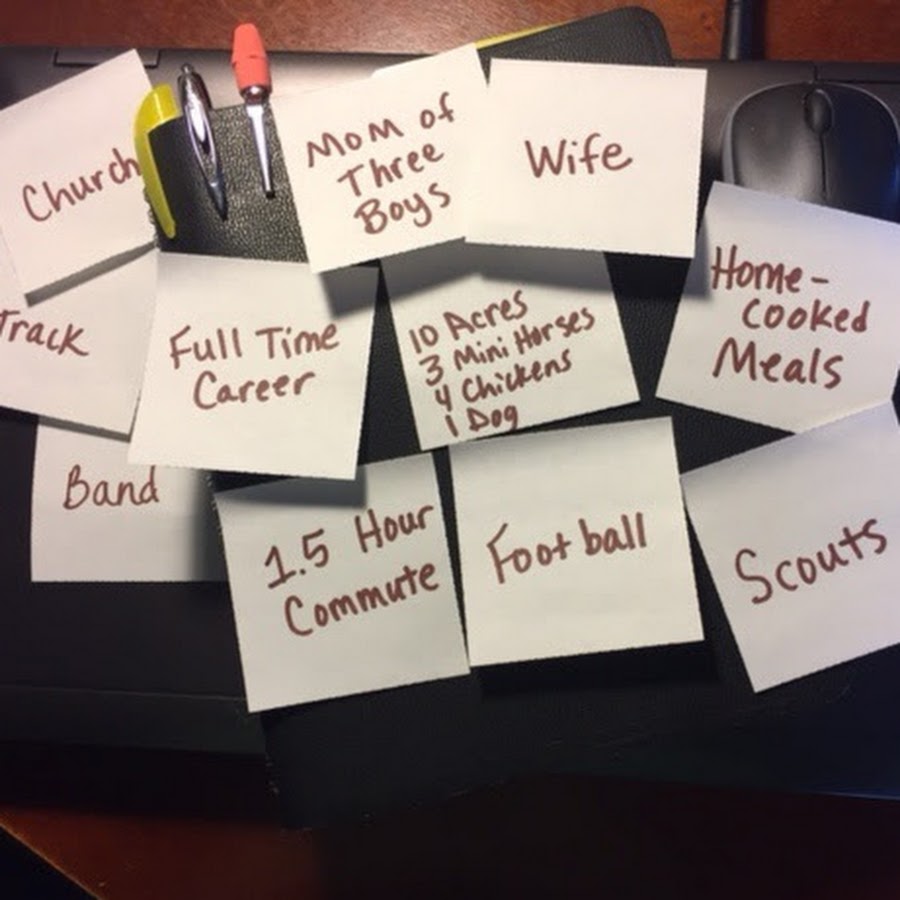 Church
Mom of
Three
Boys
Wife
Track
Full Time
Career
10 Acres
3 Mini Horses
4 Chickens
1 Dog
Home-
cooked
Meals
Band
1.5 Hour
Commute
Football
Scouts